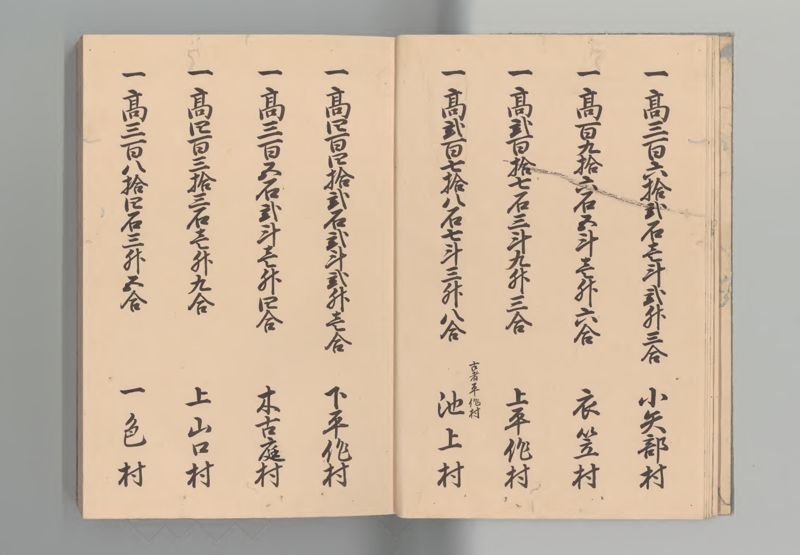 一高三百六拾弐石壱斗弐升三合 小矢部村
一高百九拾六石五斗壱升六合 衣笠村
一高弐百拾七石三斗九升三合 上平作村
古者平作村
一高弐百七拾八石七斗三升八合 池上村
一高四百四拾弐石弐斗弐升壱合 下平作村
一高三百五石弐斗壱升四合 木古庭村
一高四百三拾三石壱升九合 上山口村
一高三百八拾四石三升五合 一色村